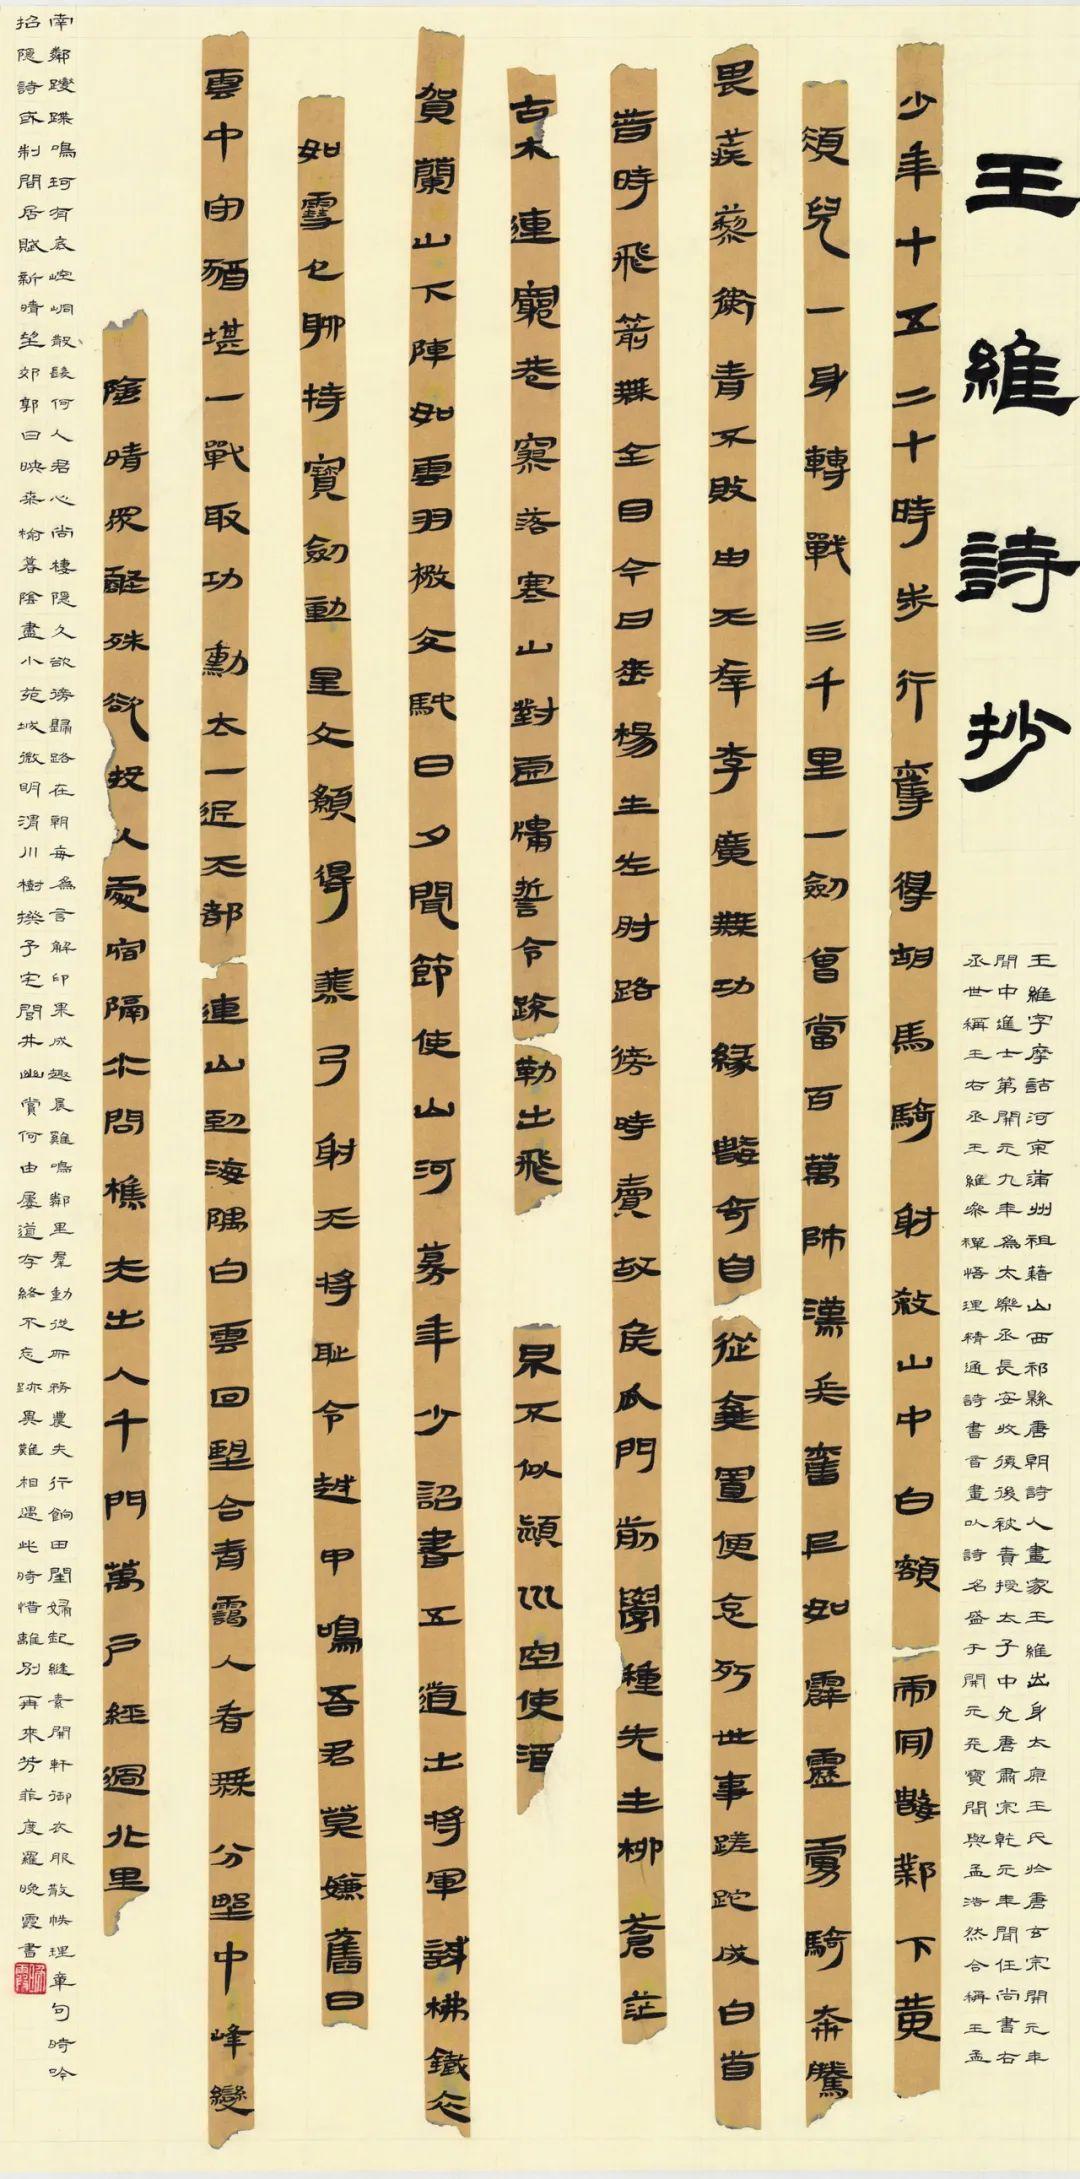 王維詩抄
王維字摩詰河東蒲州祖籍山西祁縣唐朝詩人畫家王維出身太原王氏於唐玄宗開元年
間中進士第開元九年為太樂丞長安收復後被責授太子中允唐肅宗乾元年間任尚書右
丞世稱王右丞王維參禪悟理精通詩書音畫以詩名盛于開元天寶間與孟浩然合稱王孟
少年十五二十時步行奪得胡馬騎射殺山中白額虎肯數鄴下黃
鬚兒一身轉戰三千里一劍曾當百萬師漢兵奮迅如霹靂虜騎奔騰
畏蒺藜衛青不敗由天幸李廣無功緣數奇自從棄置便衰朽世事蹉跎成白首
昔時飛箭無全目今日垂楊生左肘路傍時賣故侯瓜門前學種先生柳蒼茫
古木連窮巷寥落寒山對虛牖誓令疏勒出飛泉不似潁川空使酒
賀蘭山下陣如雲羽檄交馳日夕聞節使山河募年少詔書五道出將軍試拂鐵衣
如雪色聊持寶劍動星文願得燕弓射天將恥令越甲鳴吾君莫嫌舊日
雲中守猶堪一戰取功勳太一近天都連山到海隅白雲回望合青靄入看無分野中峰變
陰晴眾壑殊欲投人處宿隔水問樵夫出入千門萬戶經過北里
南鄰躞蹀鳴珂有底崆峒散髮何人君心尚棲隱久欲傍歸路在朝每為言解印果成趣晨雞鳴鄰里羣動從所務農夫行餉田閨婦起縫素開軒御衣服散帙理章句時吟
招隱詩或制閒居賦新晴望郊郭日映桑榆暮陰盡小苑城微明渭川樹揆予宅閭井幽賞何由屢道存終不忘跡異難相遇此時惜離別再來芳菲度羅晚霞書